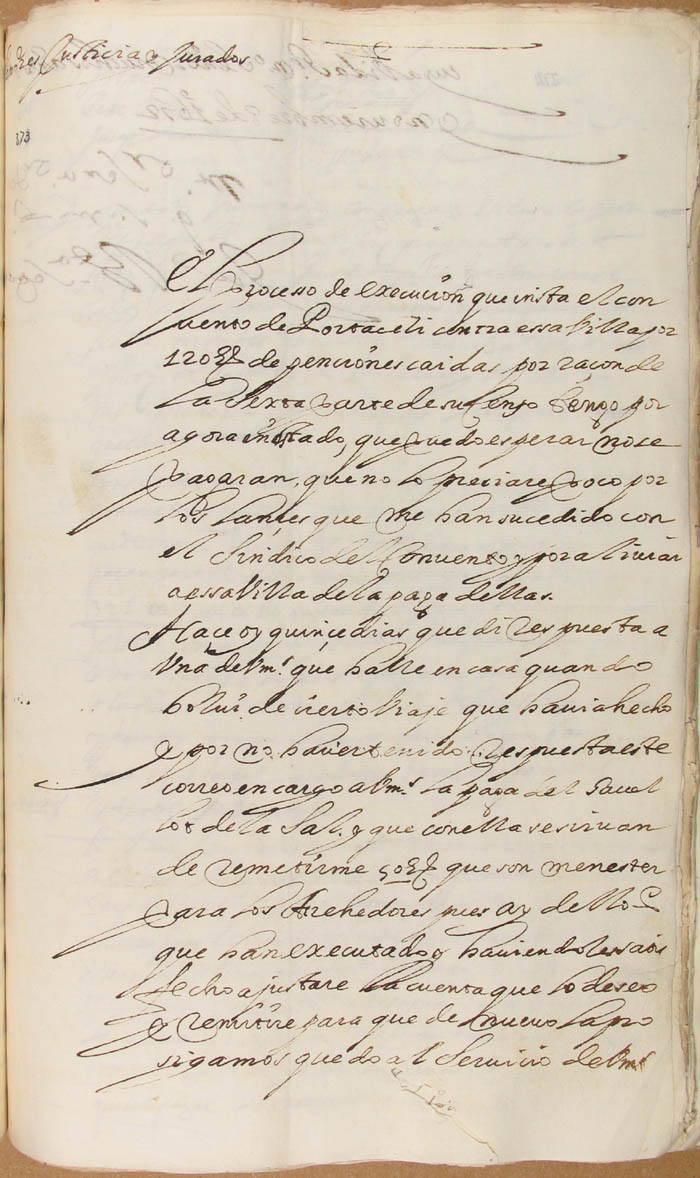 Justicia y Jurados
373
El Proceso de execucion que insta el con
uento de Portaceli contra essa Villa por
120 de penciones caidas por racon de
la Sexta parte de su Censo tengo por
agora enstado, que puedo esperar no se
pagaran, que no lo preciare poco por
los lances que me han sucedido con
el Sindico del Conuento y por aliuiar
a essa Villa de la paga dellas.
Hace oy quince dias que di respuesta a
Vna de Vms. que halle en casa quando
bolui de cierto Viaje que hauia hecho
y por no hauer tenido respuesta este
correo encargo a Vms la paga del
de la Sal, y que con ella se siruan
de remetirme 50 que son menester
para los Acrehedores pues ay dellos
que han executado y hauiendo les satis
fecho ajustare la cuenta que lo deseo
y remitire para que de nueuo la pro
sigamos quedo al Seruicio de Vms